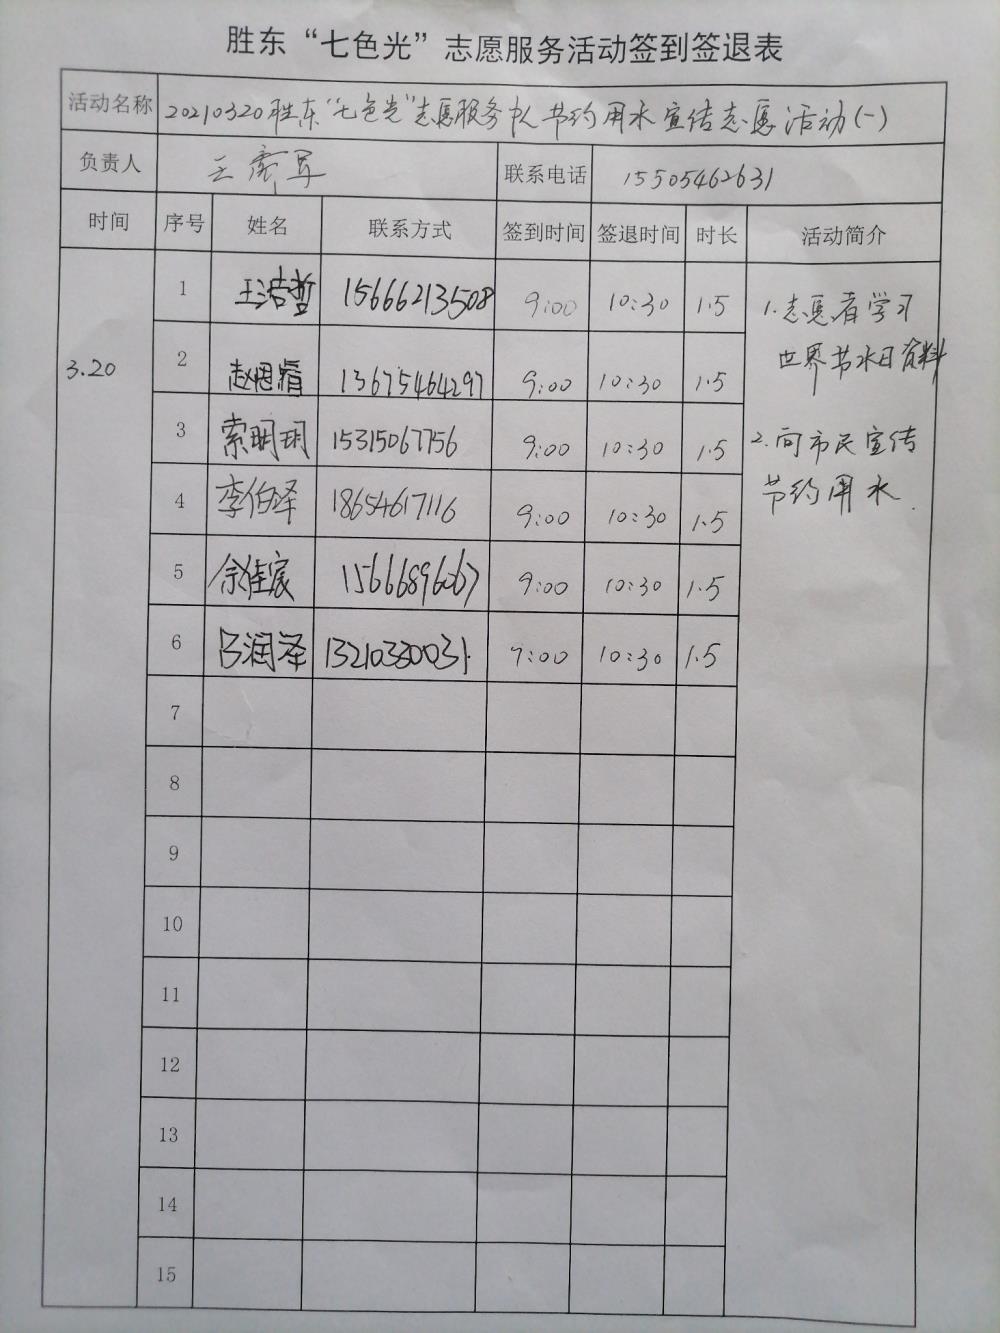 胜东“七色光”志愿服务活动签到签退表
活动名称 20210320胜东“七色光”志愿服务队节约用水宣传志愿活动(一)
负责人 王 军 联系电话 15505462631
时间 序号 姓名 联系方式 签到时间 签退时间 时长 活动简介
3.20
1 王浩哲 15666213508 9:00 10:30 1.5
2 赵 13675464297 9:00 10:30 1.5
3 索明玥 15315067756 9:00 10:30 1.5
4 李伯泽 18654617116 9:00 10:30 1.5
5 佳宸 15666896067 9:00 10:30 1.5
6 吕润泽 13210330031 9:00 10:30 1.5
7
8
9
10
11
12
13
14
15
1.志愿者学习
世界节水日资料
2.向市民宣传
节约用水.